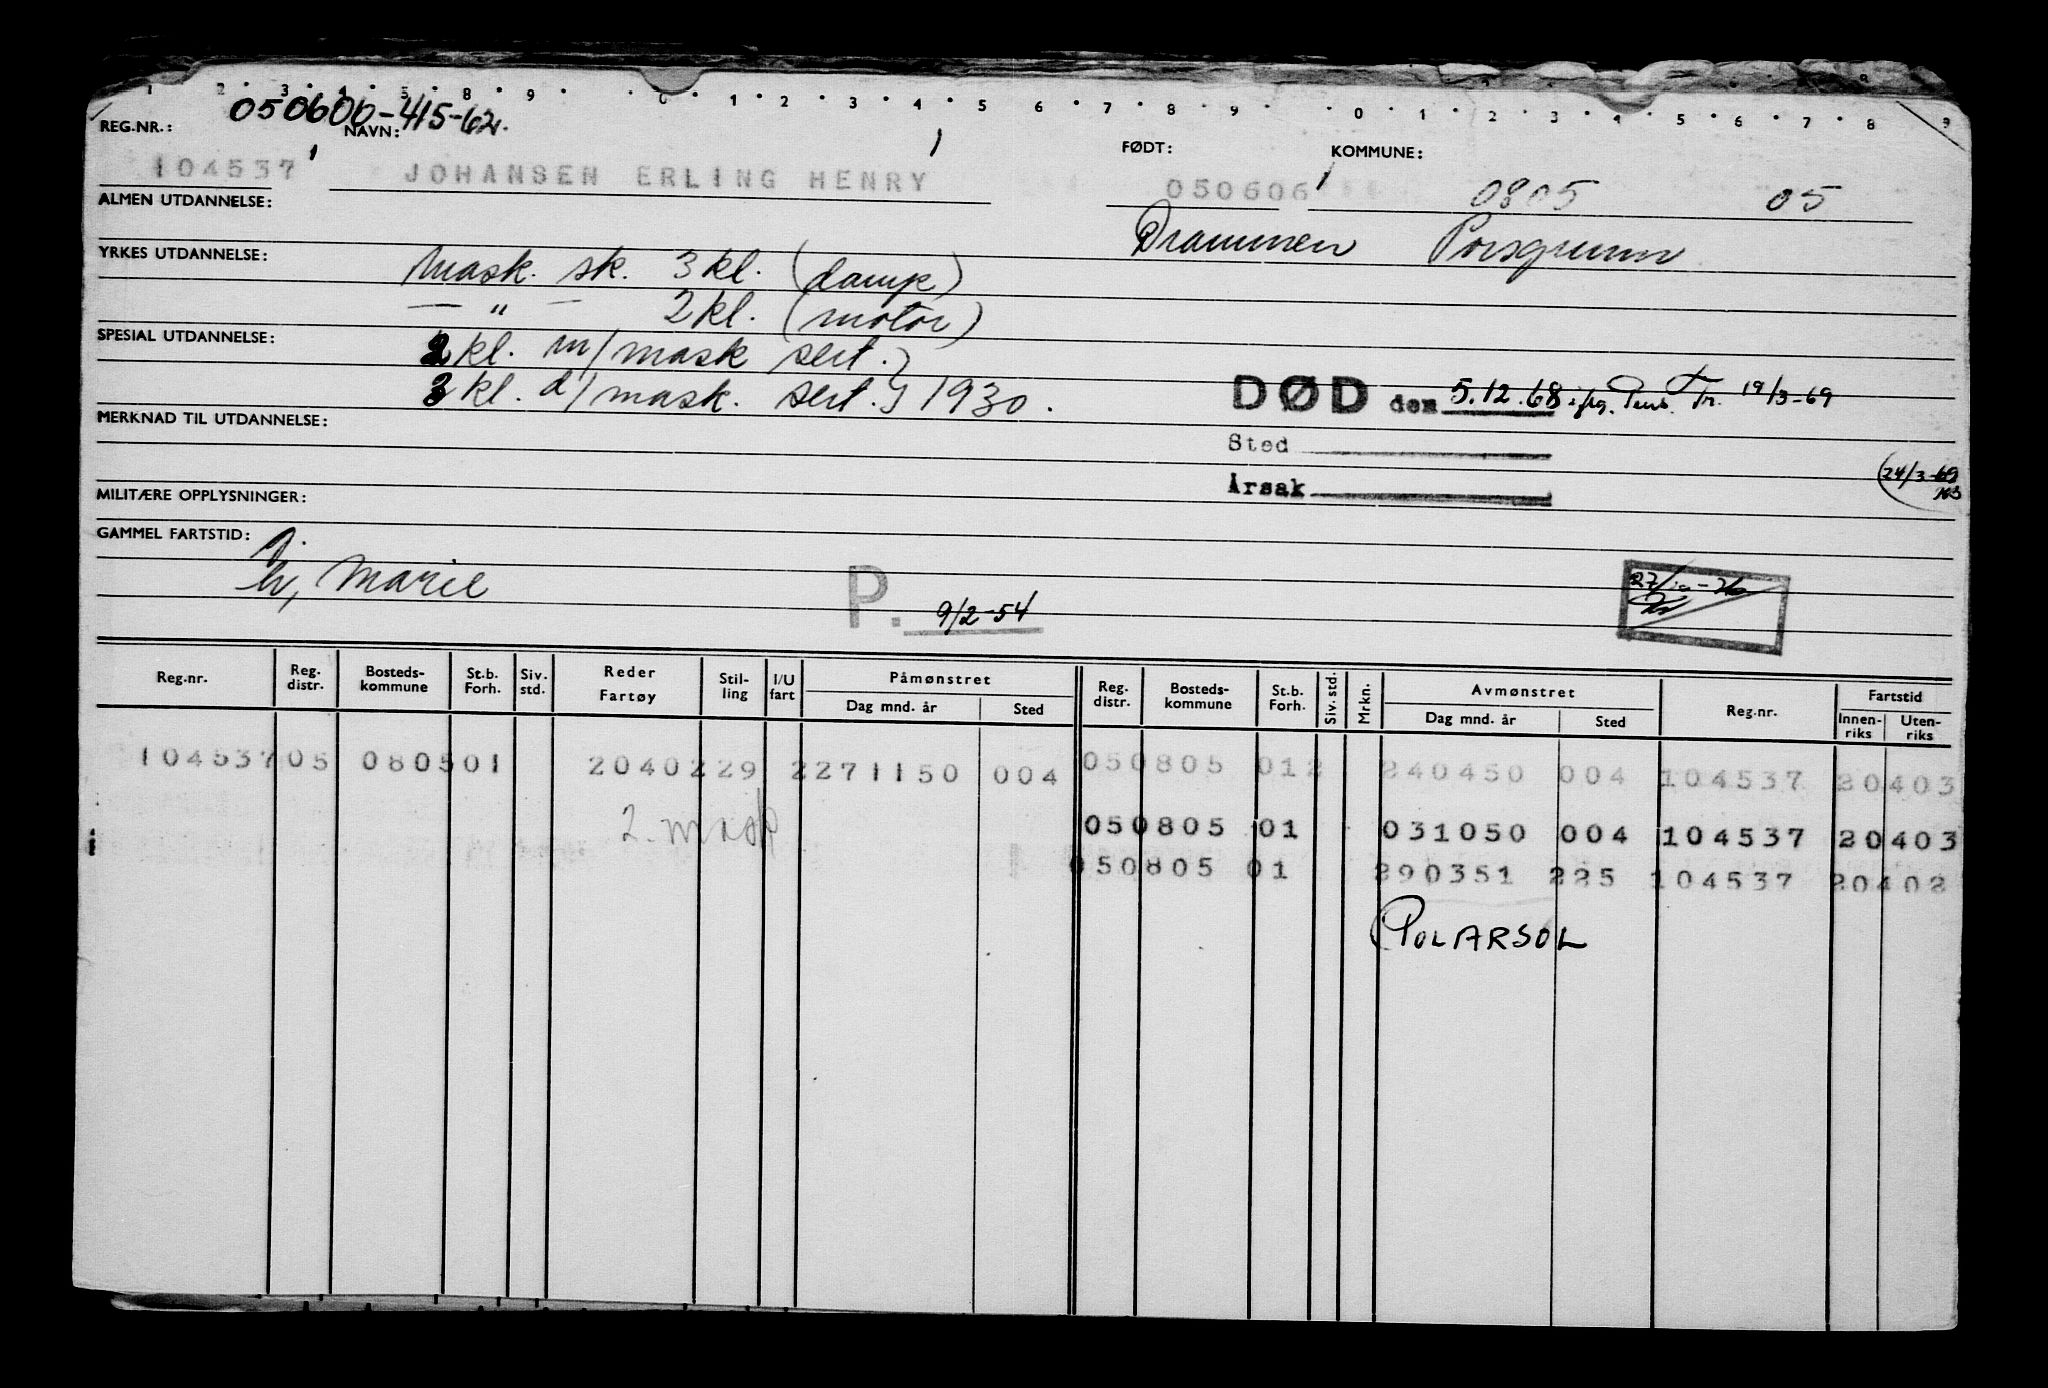 1 2 3 4 5 8 9 0 1 2 3 4 5 6 7 8 9 0 1 2 3 4 5 6 7 8 9
050600-415-62.
REG.NR.: NAVN: FØDT: KOMMUNE:
104537 JOHANSEN ERLING HENRY 050606 0805 05
ALMEN UTDANNELSE: Drammen Porsgrunn
YRKES UTDANNELSE: Mask. sk. 3 kl. (damp)
— " — 2 kl. (motor)
SPESIAL UTDANNELSE: 2 kl. m/mask sert.}
3 kl. d/mask. sert.} 1930.
DØD den 5.12.68 ifg. Tr. 19/3-69
MERKNAD TIL UTDANNELSE:
Sted
(24/3-69
Årsak
MILITÆRE OPPLYSNINGER:
GAMMEL FARTSTID:
h, Marie
P. 9/2-54
27/10-76
Reg.nr. Reg. distr. Bosteds- kommune St.b. Forh. Siv. std. Reder Fartøy Stil- ling I/U fart Påmønstret Dag mnd. år Sted Reg. distr. Bosteds- kommune St.b. Forh. Siv. std. Mrkn. Avmønstret Dag mnd. år Sted Reg.nr. Fartstid Innen- riks Uten- riks
104537 05 0805 01 20402 29 2 271150 004 05 0805 012 240450 004 104537 20403
2. mask 05 0805 01 031050 004 104537 20403
05 0805 01 290351 225 104537 20402
POLARSOL